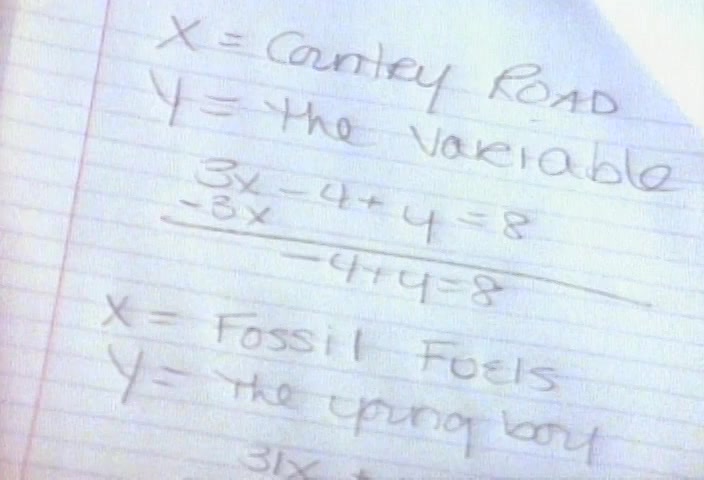 X = Country ROAD
Y = the variable
3x - 4 + y = 8
-3x
-4 + y = 8
X = Fossil Fuels
Y = the young boy
31x +